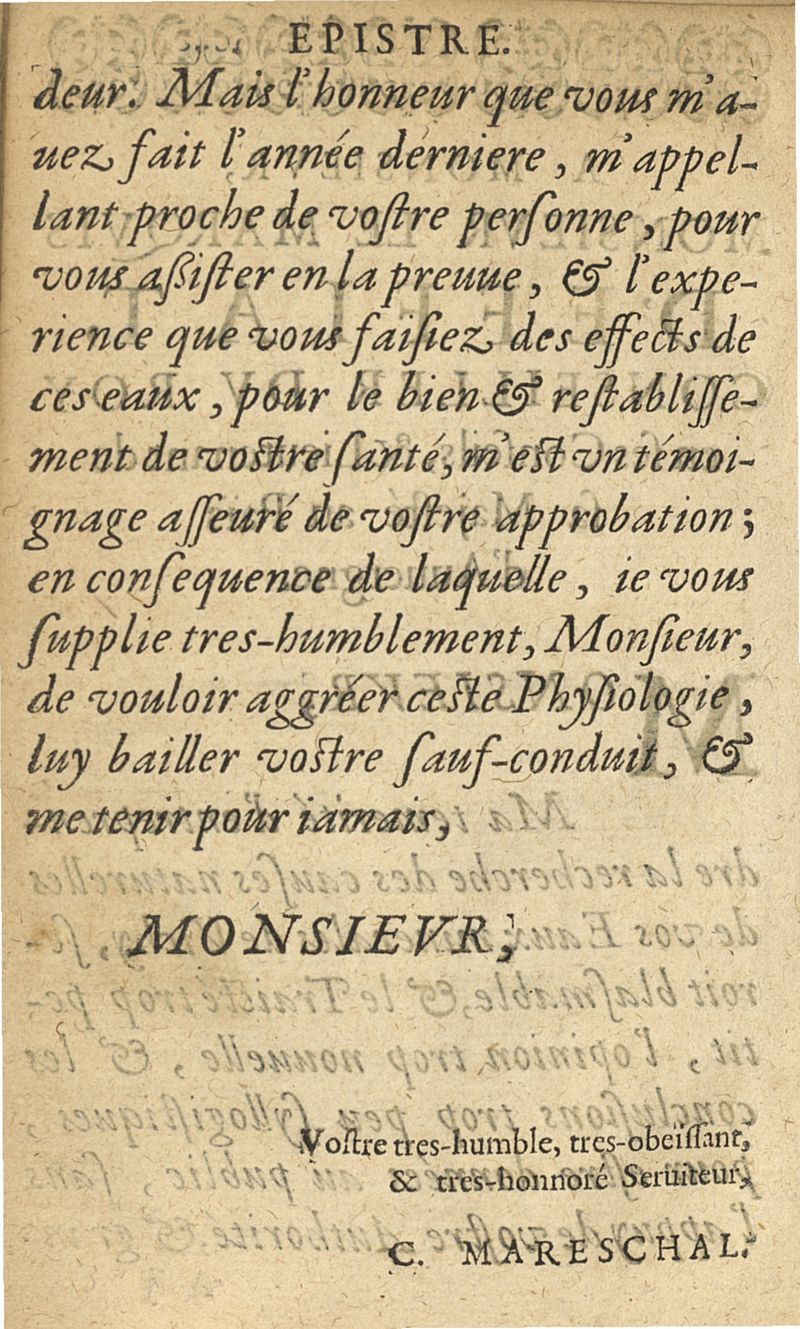 EPISTRE.
deur. Mais l'honneur que vous m'a-
uez fait l'année derniere, m'appel-
lant proche de voſtre perſonne, pour
vous aſſiſter en la preuue, & l'expe-
rience que vous faiſiez des effects de
ces eaux, pour le bien & reſtabliſſe-
ment de voſtre ſanté, m'eſt vn témoi-
gnage aſſeuré de voſtre approbation;
en conſequence de laquelle, ie vous
ſupplie tres-humblement, Monſieur,
de vouloir aggréer ceſte Phyſiologie,
luy bailler voſtre ſauf-conduit, &
me tenir pour iamais,
MONSIEVR,
Voſtre tres-humble, tres-obeïſſant,
& tres-honnoré Seruiteur,
C. MARESCHAL.